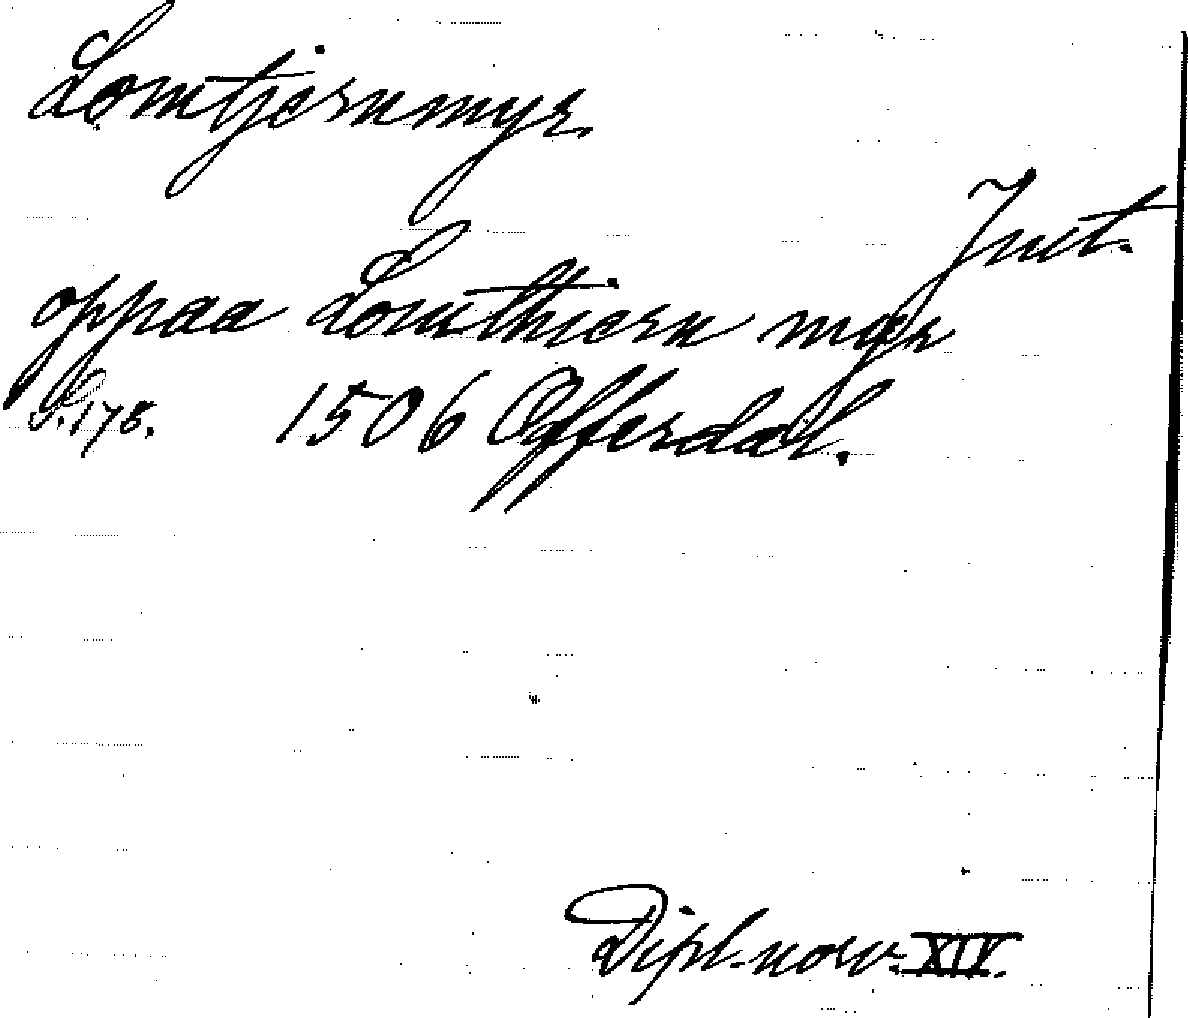 Lomtjernmyr.
Jmt.
oppaa Lomthiern myr
S. 178. 1506 Offerdal.
Dipl. norv. XIV.